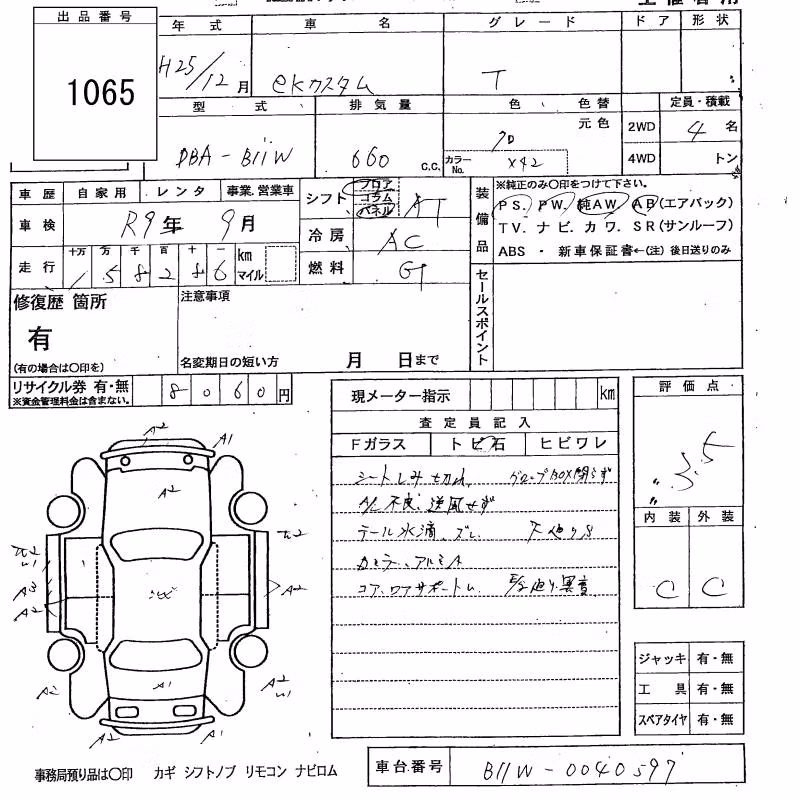 出品番号
1065
年式 車名 グレード ドア 形状
H25/12月 eKカスタム T
型式 排気量 色 色替 定員・積載
元色
DBA-B11W 660 c.c. クロ カラーNo. X42 2WD 4WD 4名 トン
車歴 自家用 レンタ 事業.営業車
シフト フロア コラム パネル AT
装備品
※純正のみ〇印をつけて下さい。
PS. PW. 純AW. AB(エアバック)
TV. ナビ. カワ. SR(サンルーフ)
ABS ・ 新車保証書←(注) 後日送りのみ
車検 R9年 9月
冷房 AC
走行 十万 万 千 百 十 一 km マイル
158286
燃料 G
セールスポイント
修復歴 箇所
有
(有の場合は〇印を)
注意事項
名変期日の短い方 月 日まで
リサイクル券 有・無 8060円
※資金管理料金は含まない。
現メーター指示 km
評価点
3.5
査定員記入
Fガラス トビ石 ヒビワレ
シートしみ 切れ グローブBOX閉らず
A/C不良、送風せず
テール水滴、ズレ 下廻りS
カミラー、アルミA
コア、ロアサポートム
内装 外装
C C
A2 A1
A2
A2
A3
A2
A2
A1
A2
A2
A2
ジャッキ 有・無
工具 有・無
スペアタイヤ 有・無
事務局預り品は〇印 カギ シフトノブ リモコン ナビロム
車台番号 B11W-0040597